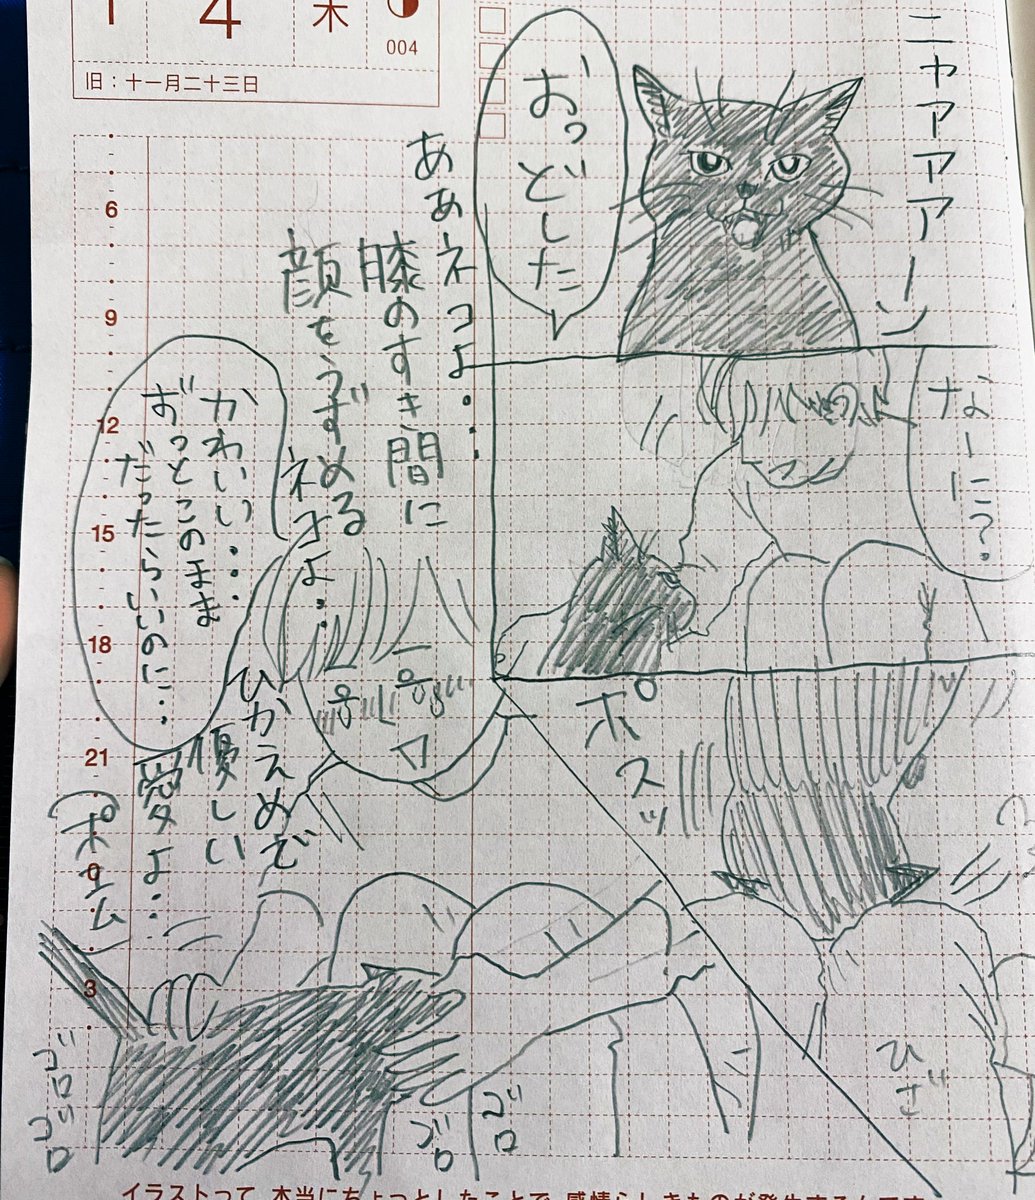 1
4
木
004
旧：十一月二十三日
ニャアアアーン
おっどした
なーに？
ポスッ
ひざ
ああネコよ・・・
膝のすき間に
顔をうずめる
ネコよ・・・
ひかえめで
優しい
愛よ・・・
ポエム
かわいい・・・
ずっとこのまま
だったらいいのに・・・
ゴロゴロ
ゴロ
ゴロ
6
9
12
15
18
21
0
3
イラストって、本当にちょっとしたことで、感情らしきものが発生するんです